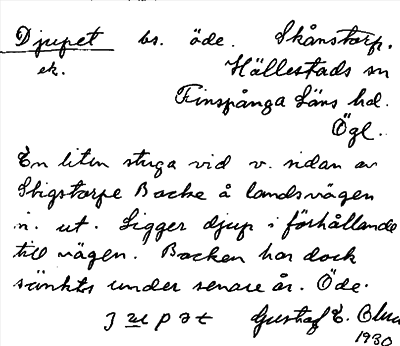 Djupet bs. öde. Skånstorp.
ek. Hällestads sn
Finspånga Läns hd.
Ögl.
En liten stuga vid v. sidan av
Stigstorpe Backe å landsvägen
n. ut. Ligger djup i förhållande
till vägen. Backen har dock
sänkts under senare år. Öde.
Gustaf E.
1930